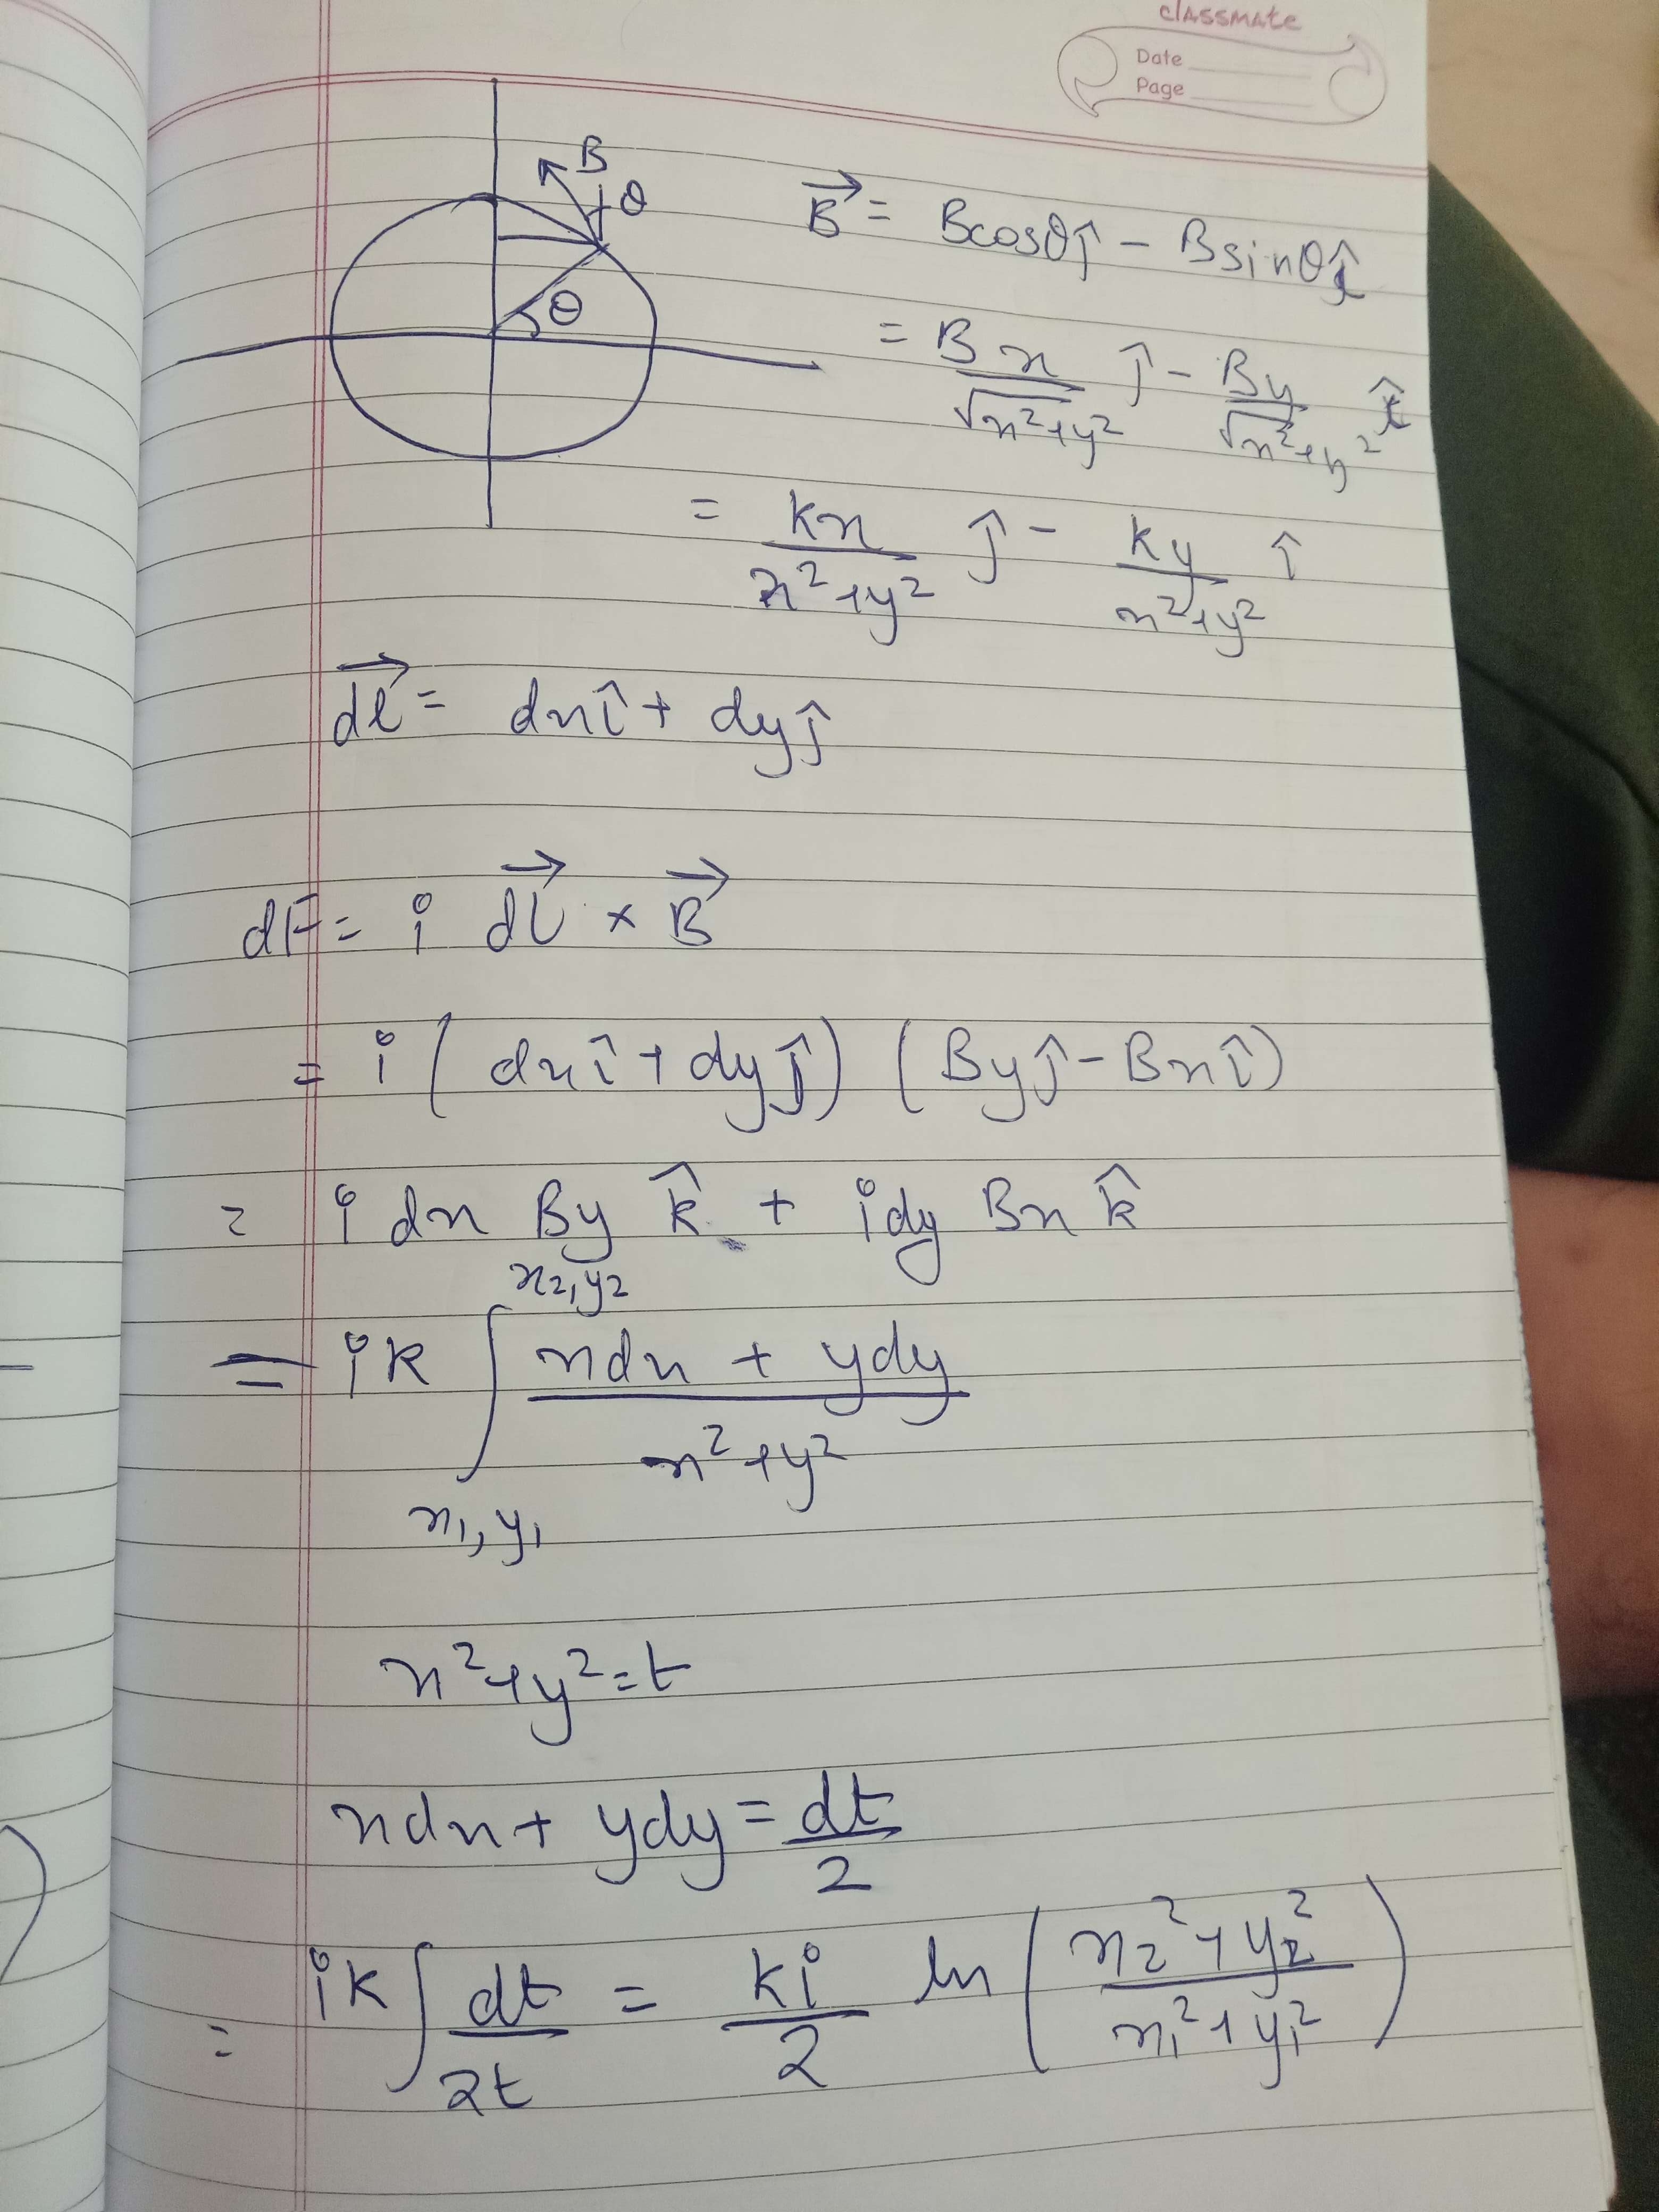 classmate
Date
Page
B
θ
θ
B⃗ = Bcosθĵ − Bsinθî
= Bx/√x²+y² ĵ − By/√x²+y² î
= kx/x²+y² ĵ − ky/x²+y² î
dl⃗ = dxî + dyĵ
dF = i dl⃗ × B⃗
= i (dxî + dyĵ) (Byĵ − Bxî)
= i dx By k̂ + i dy Bx k̂
= ik ∫ x₁,y₁ x₂,y₂ xdx + ydy / x²+y²
x²+y²=t
xdx + ydy = dt/2
= ik ∫ dt/2t = ki/2 ln (x₂²+y₂² / x₁²+y₁²)